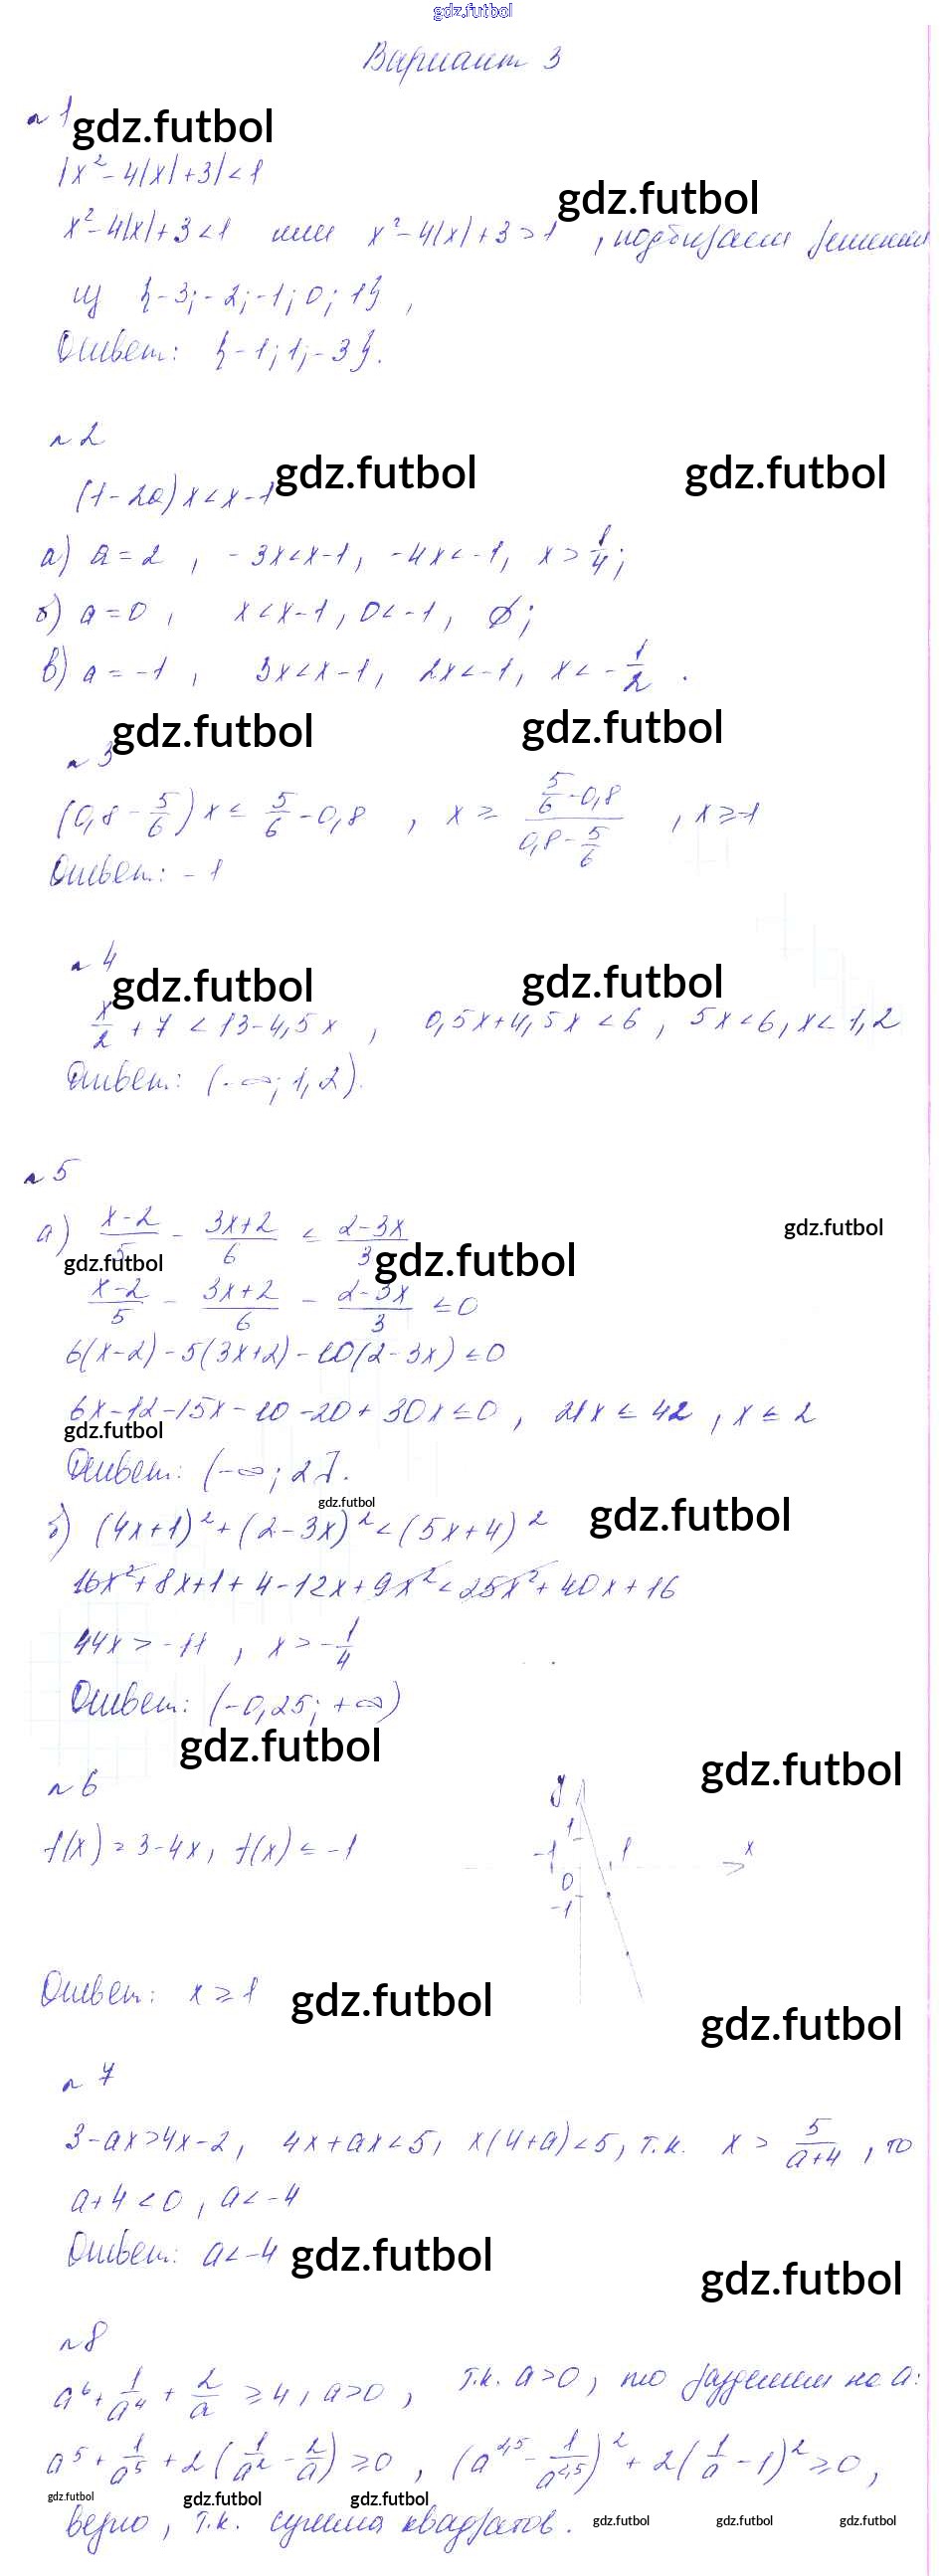 gdz.futbol
Вариант 3
№1 gdz.futbol
|x² - 4|x| + 3| < 1
gdz.futbol
x² - 4|x| + 3 < 1 или x² - 4|x| + 3 > 1 , подбираем решения
из {-3; -2; -1; 0; 1} ,
Ответ: {-1; 1; -3}.
№2
gdz.futbol gdz.futbol
(1 - 2a)x < x - 1
а) a = 2 , -3x < x - 1, -4x < -1, x > 1/4;
б) a = 0 , x < x - 1, 0 < -1, ∅;
в) a = -1 , 3x < x - 1, 2x < -1, x < -1/2 .
gdz.futbol gdz.futbol
№3
(0,8 - 5/6)x ≤ 5/6 - 0,8 , x ≥ (5/6 - 0,8)/(0,8 - 5/6) , x ≥ -1
Ответ: -1
№4
gdz.futbol gdz.futbol
x/2 + 7 < 13 - 4,5x , 0,5x + 4,5x < 6 , 5x < 6, x < 1,2
Ответ: (-∞; 1,2).
№5
а) (x-2)/5 - (3x+2)/6 ≤ (2-3x)/3
gdz.futbol
gdz.futbol gdz.futbol
(x-2)/5 - (3x+2)/6 - (2-3x)/3 ≤ 0
6(x-2) - 5(3x+2) - 10(2-3x) ≤ 0
6x - 12 - 15x - 10 - 20 + 30x ≤ 0 , 21x ≤ 42 , x ≤ 2
gdz.futbol
Ответ: (-∞; 2].
gdz.futbol
б) (4x+1)² + (2-3x)² < (5x+4)² gdz.futbol
16x² + 8x + 1 + 4 - 12x + 9x² < 25x² + 40x + 16
44x > -11 , x > -1/4
Ответ: (-0,25; +∞)
gdz.futbol gdz.futbol
№6
f(x) = 3 - 4x, f(x) ≤ -1
y
1
-1 1 x
0
-1
Ответ: x ≥ 1 gdz.futbol
gdz.futbol
№7
3 - ax > 4x - 2, 4x + ax < 5, x(4+a) < 5, т.к. x > 5/(a+4) , то
a + 4 < 0 , a < -4
Ответ: a < -4 gdz.futbol
gdz.futbol
№8
a⁶ + 1/a⁴ + 2/a ≥ 4, a > 0 , т.к. a > 0 , то разделим на a:
a⁵ + 1/a⁵ + 2(1/a² - 2/a) ≥ 0 , (a^2,5 - 1/a^2,5)² + 2(1/a - 1)² ≥ 0 ,
gdz.futbol gdz.futbol gdz.futbol
верно , т.к. сумма квадратов. gdz.futbol gdz.futbol gdz.futbol